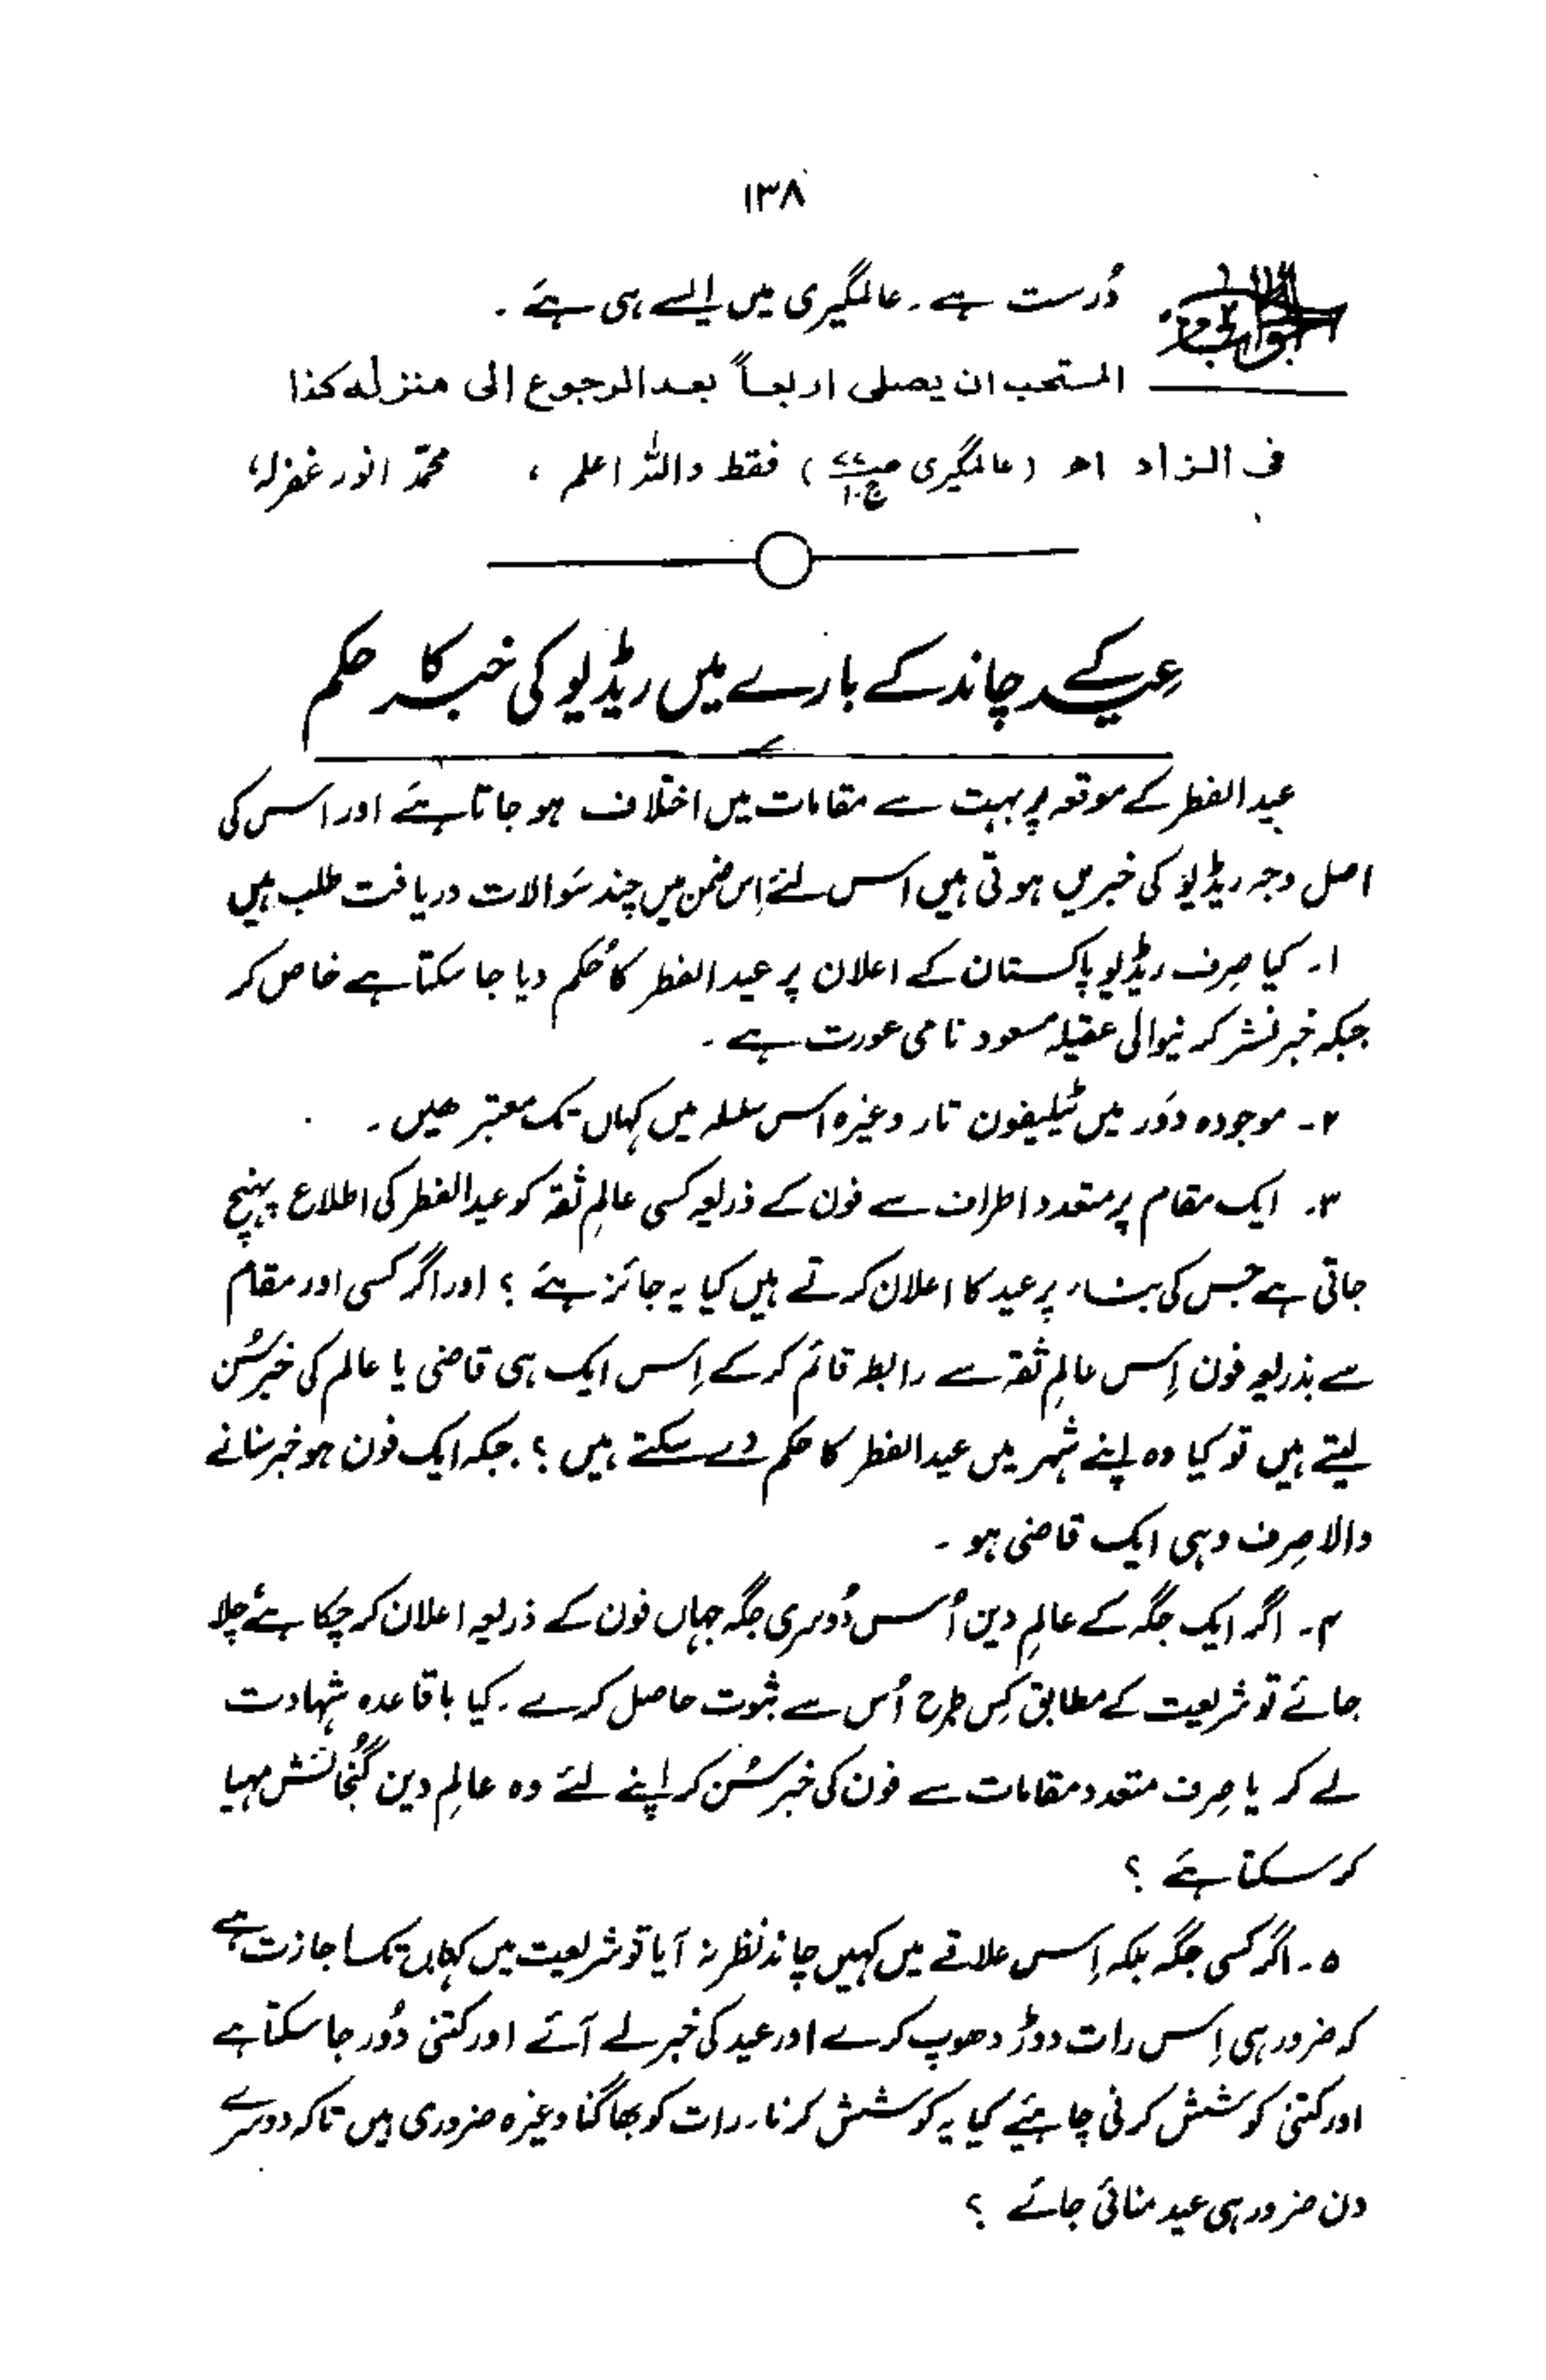 ۱۳۸
الجواب درست ہے۔ عالمگیری میں ایسے ہی ہے۔
المستحب ان یصلی اربعاً بعد الرجوع الی منزلہ کذا
فی الزاد اھ (عالمگیری ج۱) فقط واللہ اعلم ، محمد انور غفرلہ،
عید کے چاند کے بارے میں ریڈیو کی خبر کا حکم
عید الفطر کے موقعہ پر بہت سے مقامات میں اختلاف ہو جاتا ہے اور اس کی
اصل وجہ ریڈیو کی خبریں ہوتی ہیں اس لئے اِس ضمن میں چند سَوالات دریافت طلب ہیں
۱۔ کیا صِرف ریڈیو پاکستان کے اعلان پر عید الفطر کا حُکم دیا جا سکتا ہے خاص کر
جبکہ خبر نشر کرنیوالی عقیلہ مسعود نامی عورت ہے۔
۲۔ موجودہ دَور میں ٹیلیفون تار وغیرہ اس سلسلہ میں کہاں تک معتبر ہیں۔
۳۔ ایک مقام پر متعدد اطراف سے فون کے ذریعہ کسی عالمِ ثقہ کو عید الفطر کی اطلاع پہنچ
جاتی ہے جس کی بناء پر عید کا اعلان کرتے ہیں کیا یہ جائز ہے ؟ اور اگر کسی اور مقام
سے بذریعہ فون اِس عالمِ ثقہ سے رابطہ قائم کر کے اِس ایک ہی قاضی یا عالم کی خبر سُن
لیتے ہیں تو کیا وہ اپنے شہر میں عید الفطر کا حکم دے سکتے ہیں ؟ جبکہ ایک فون ہو خبر سنانے
والا صِرف وہی ایک قاضی ہو۔
۴۔ اگر ایک جگہ کے عالمِ دین اُس دُوسری جگہ جہاں فون کے ذریعہ اعلان کر چکا ہے چلا
جائے تو شریعت کے مطابق کِس طرح اُس سے ثبوت حاصل کرے۔ کیا باقاعدہ شہادت
لے کر یا صِرف متعدد مقامات سے فون کی خبر سُن کر اپنے لئے وہ عالمِ دین گُنجائش مہیا
کر سکتا ہے ؟
۵۔ اگر کسی جگہ بلکہ اِس علاقے میں کہیں چاند نظر نہ آیا تو شریعت میں کہاں تک اجازت ہے
کہ ضرور ہی اِس رات دوڑ دھوپ کرے اور عید کی خبر لے آئے اور کتنی دُور جا سکتا ہے
اور کتنی کوشش کرنی چاہئیے کیا یہ کوشش کرنا۔ رات کو بھاگنا وغیرہ ضروری ہیں تاکہ دوسرے
دن ضرور ہی عید منائی جائے ؟